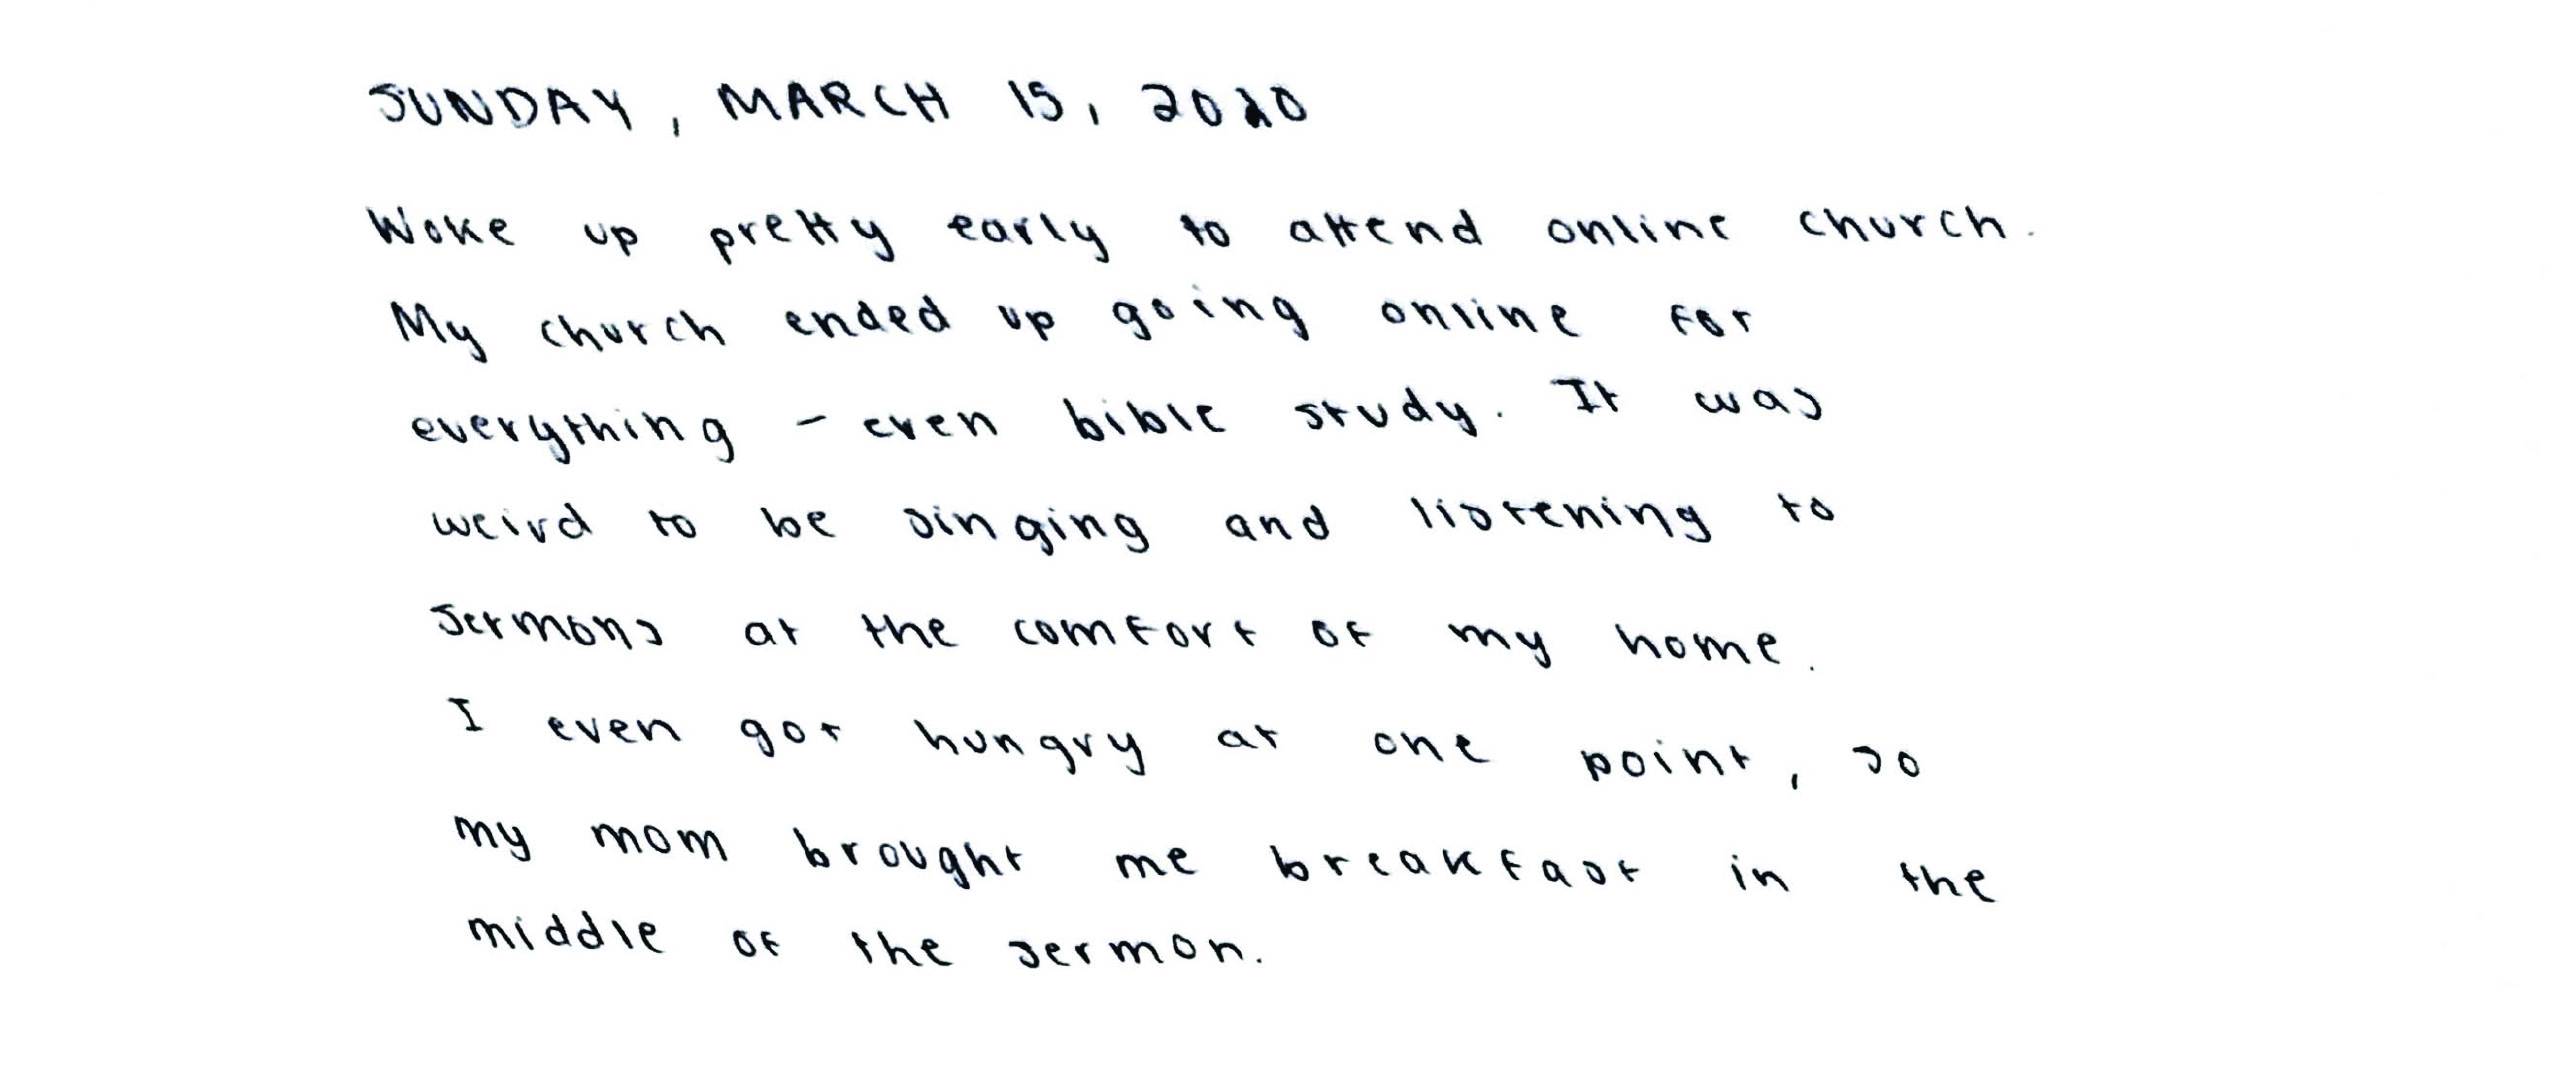 SUNDAY, MARCH 15, 2020
Woke up pretty early to attend online church.
My church ended up going online for
everything - even bible study. It was
weird to be singing and listening to
sermons at the comfort of my home.
I even got hungry at one point, so
my mom brought me breakfast in the
middle of the sermon.